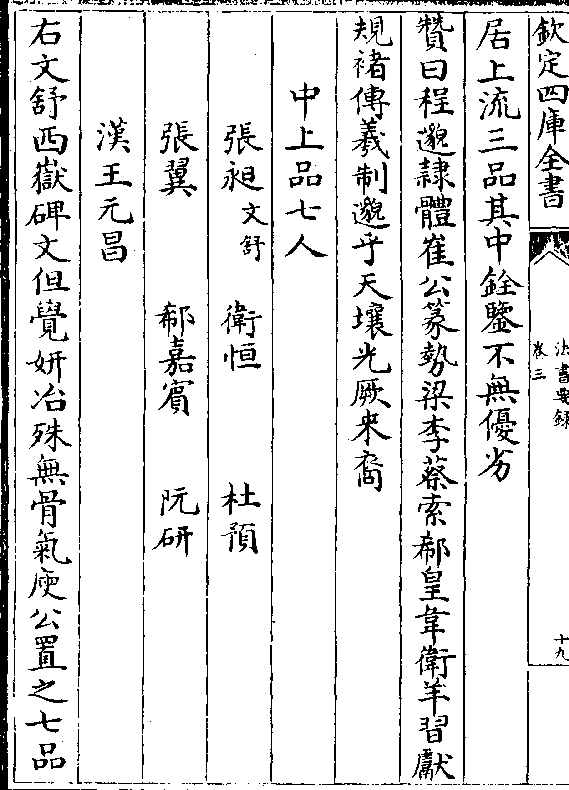 欽定四庫全書
法書要錄
卷三
十九
居上流三品其中銓鑒不無優劣
贊曰程邈隸體崔公篆勢梁李蔡索郗皇韋衛羊習獻
規褚傳羲制邈乎天壤光厥來裔
中上品七人
張昶文舒 衛恒 杜預
張翼 郗嘉賓 阮研
漢王元昌
右文舒西嶽碑文但覺妍冶殊無骨氣庾公置之七品